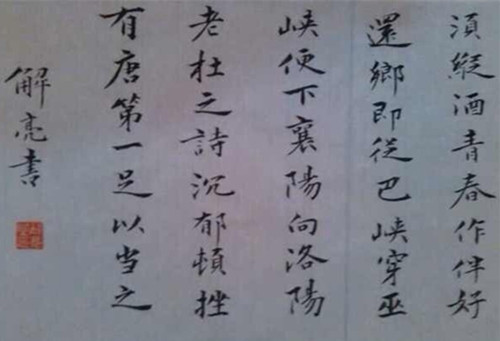 須縱酒青春作伴好
還鄉即從巴峽穿巫
峽便下襄陽向洛陽
老杜之詩沉郁頓挫
有唐第一足以当之
解亮書